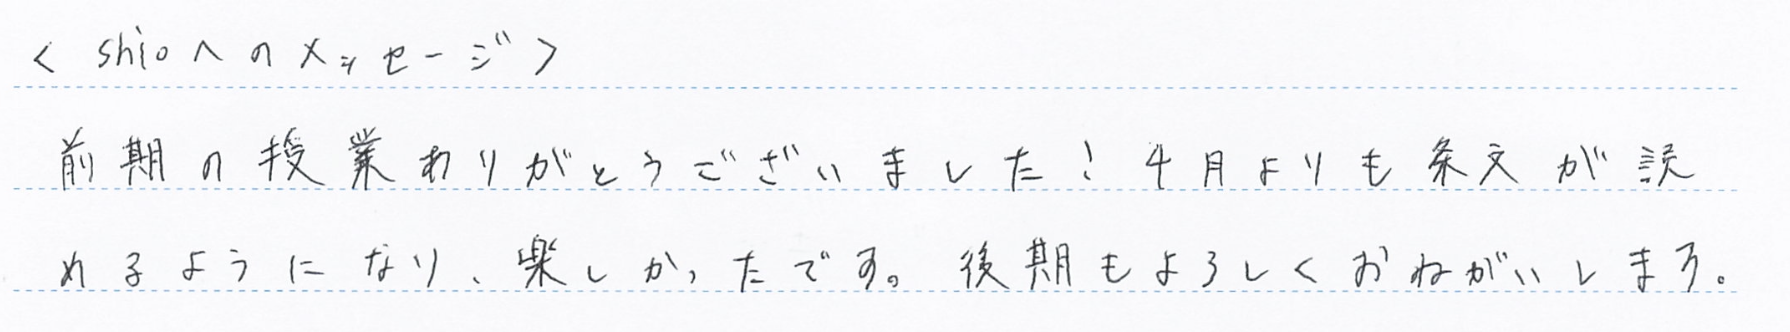 < shioへのメッセージ >
前期の授業ありがとうございました！4月よりも条文が読
めるようになり、楽しかったです。後期もよろしくおねがいします。